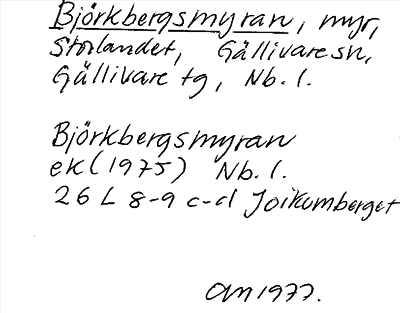 Björkbergsmyran, myr,
Storlandet, Gällivare sn,
Gällivare tg, Nb. l.
Björkbergsmyran
ek (1975) Nb. l.
26 L 8-9 c-d Joikomberget
1977.